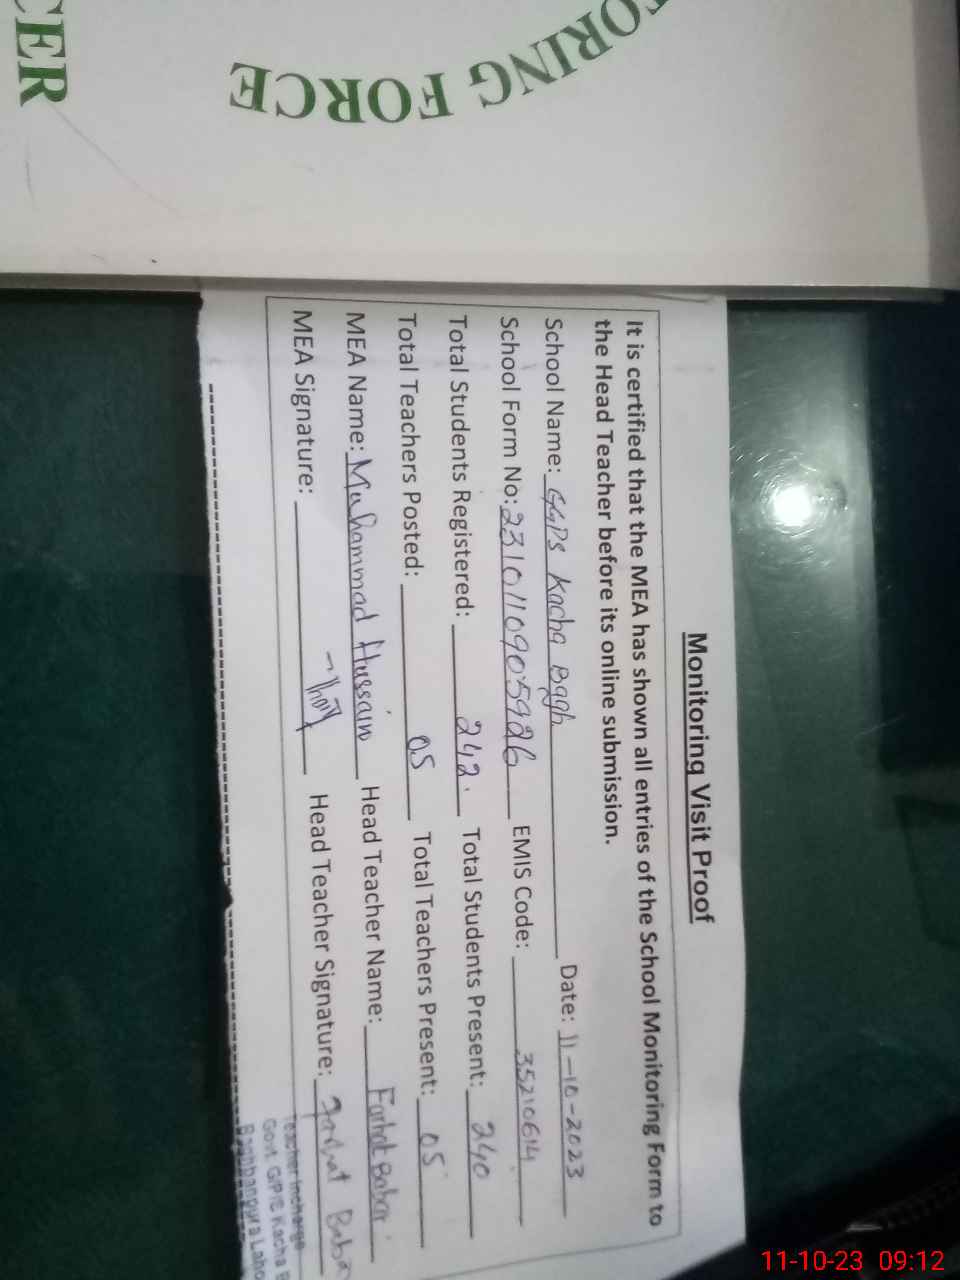 ORING FORCE
CER
Monitoring Visit Proof
It is certified that the MEA has shown all entries of the School Monitoring Form to
the Head Teacher before its online submission.
School Name: GGPS Kacha Bagh Date: 11-10-2023
School Form No: 2310110905926 EMIS Code: 35210614
Total Students Registered: 242 Total Students Present: 240
Total Teachers Posted: 05 Total Teachers Present: 05
MEA Name: Muhammad Hussain Head Teacher Name: Farhat Babar
MEA Signature: Head Teacher Signature: Farhat Baba
Teacher Incharge
Govt. G/P/S Kacha B
Baghbanpura Laho
11-10-23 09:12